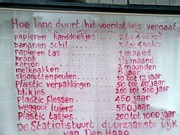 Hoe lang duurt het voordat iets vergaat
papieren handdoekjes 2 à 4 weken
bananen schil 2 à
papieren tas 1 maand
krant 1½ maand
klokhuis 2 maanden
melkpakken 3 maanden
sigarettenpeuken 10 tot 12 jaar
Plastic verpakkingen 20 tot 60 jaar
blikjes 200 jaar
Plastic flessen 450 jaar
vergoot luiers 550 jaar
Plastic tasjes 200 tot 1000 jaar
De Stationstuurt duurzaamste wijk
van Den Haag